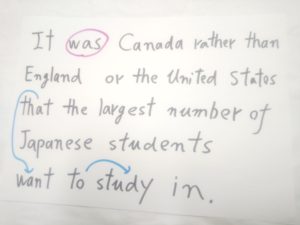 It was Canada rather than
England or the United States
that the largest number of
Japanese students
want to study in.